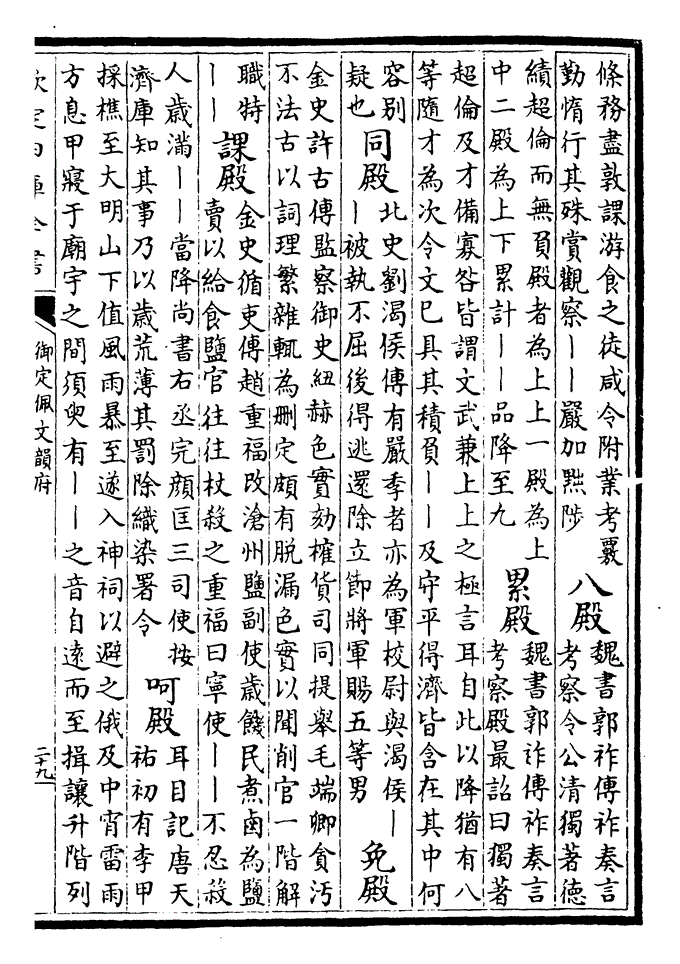 條務盡敦課游食之徒咸令附業考覈
勤惰行其殊賞觀察——嚴加黜陟
八殿
魏書郭祚傳祚奏言
考察令公清獨著德
績超倫而無負殿者為上上一殿為上
中二殿為上下累計——品降至九
累殿
魏書郭祚傳祚奏言
考察殿最詔曰獨著
超倫及才備寡咎皆謂文武兼上上之極言耳自此以降猶有八
等隨才為次令文已具其積負——及守平得濟皆含在其中何
容別
疑也
同殿
北史劉渴侯傳有嚴季者亦為軍校尉與渴侯—
—被執不屈後得逃還除立節將軍賜五等男
免殿
金史許古傳監察御史紐赫色實劾榷貨司同提舉毛端卿貪汚
不法古以詞理繁雜輒為刪定頗有脫漏色實以聞削官一階解
職特
——
課殿
金史循吏傳趙重福改滄州鹽副使歲饑民煮鹵為鹽
賣以給食鹽官往往杖殺之重福曰寧使——不忍殺
人歲滿——當降尚書右丞完顏匡三司使按
濟庫知其事乃以歲荒薄其罰除織染署令
呵殿
耳目記唐天
祐初有李甲
採樵至大明山下值風雨暴至遂入神祠以避之俄及中宵雷雨
方息甲寢于廟宇之間須臾有——之音自遠而至揖讓升階列
欽定四庫全書
御定佩文韻府
二十九